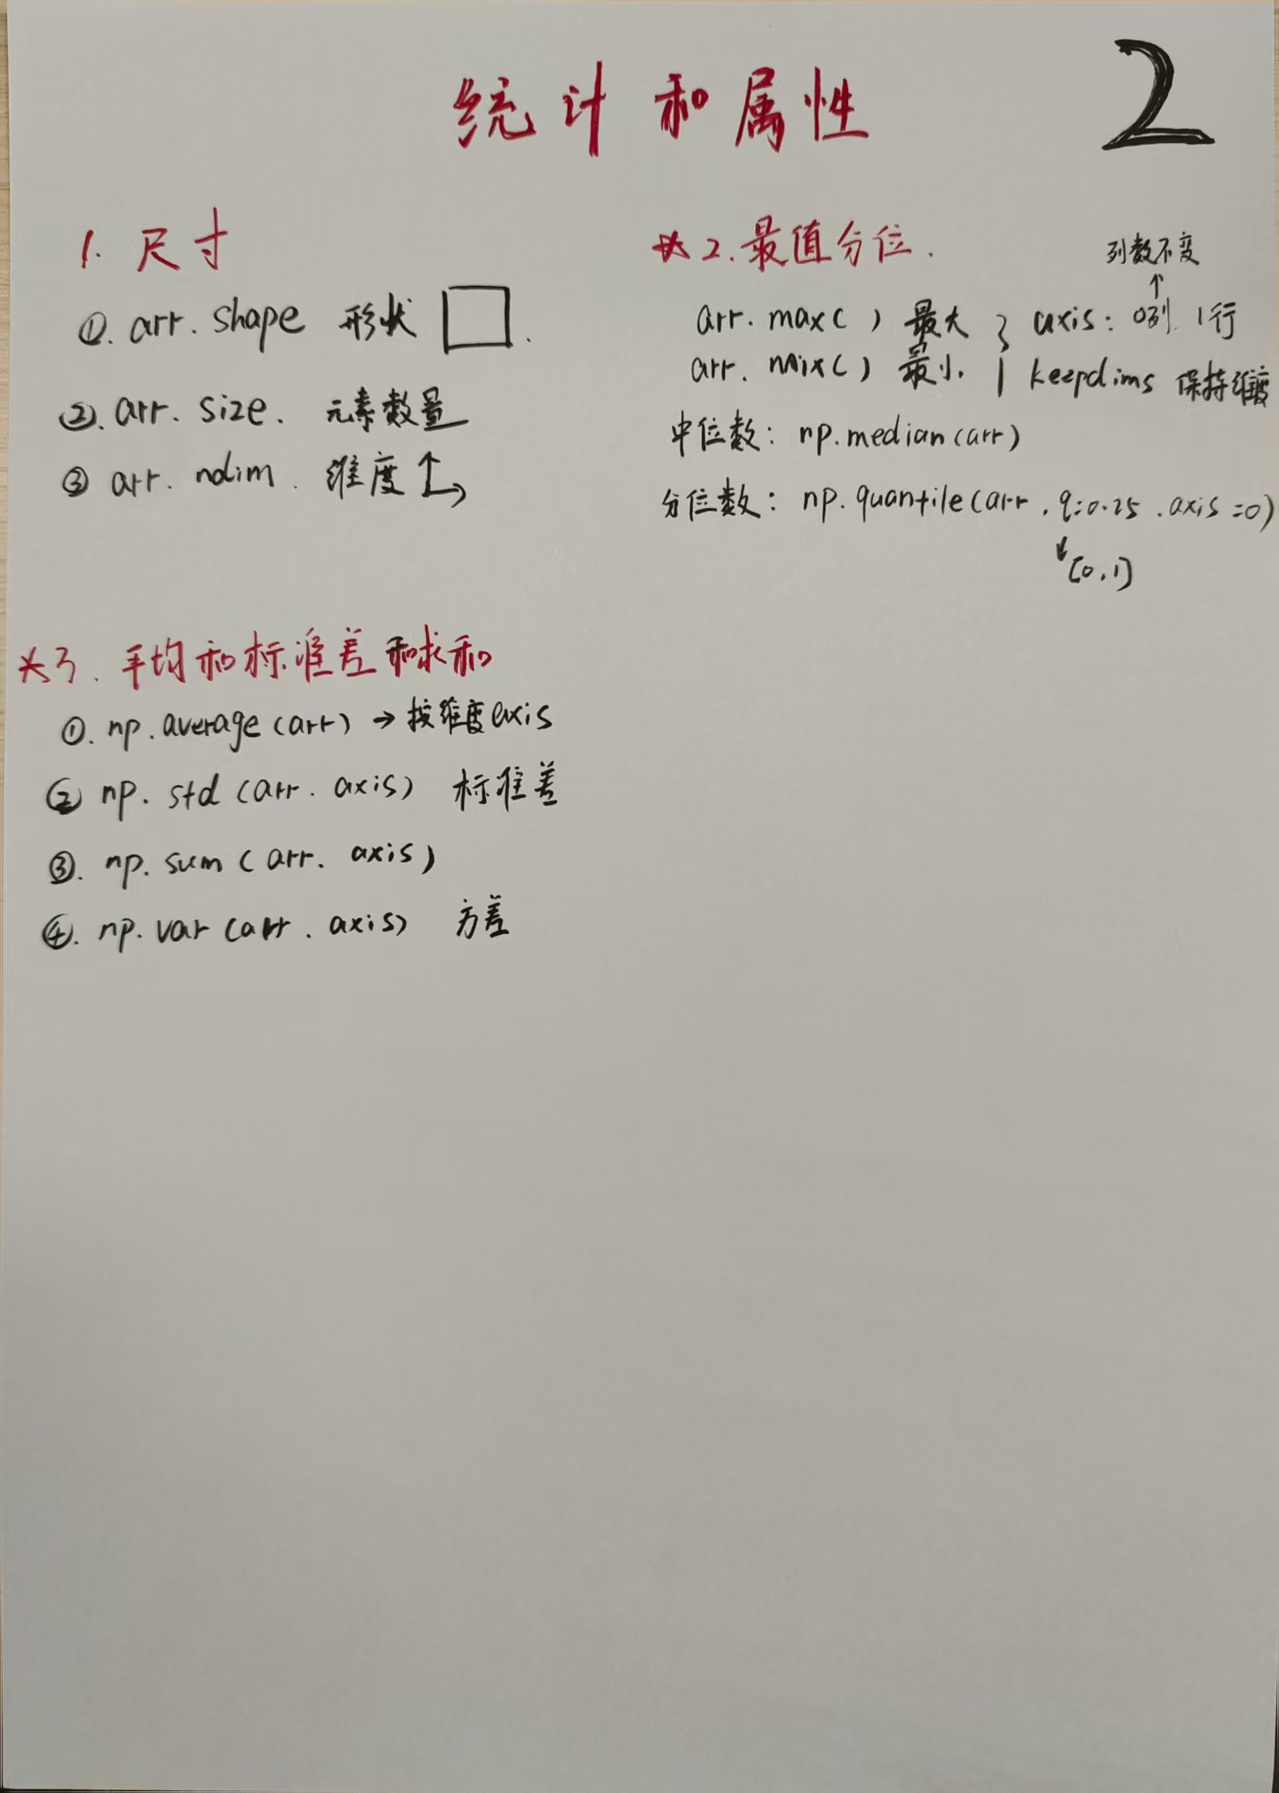 统计和属性
2
1. 尺寸
①. arr. shape 形状
②. arr. size. 元素数量
③ arr. ndim. 维度
*2. 最值分位.
列数不变
arr. max( ) 最大 axis: 0列. 1行
arr. mix( ) 最小. keepdims 保持维度
中位数: np.median(arr)
分位数: np.quantile(arr, q=0.25, axis=0)
[0,1]
*3. 平均和标准差和求和
①. np.average(arr) → 按维度axis
② np. std (arr. axis) 标准差
③. np. sum( arr. axis)
④. np. var (arr. axis) 方差